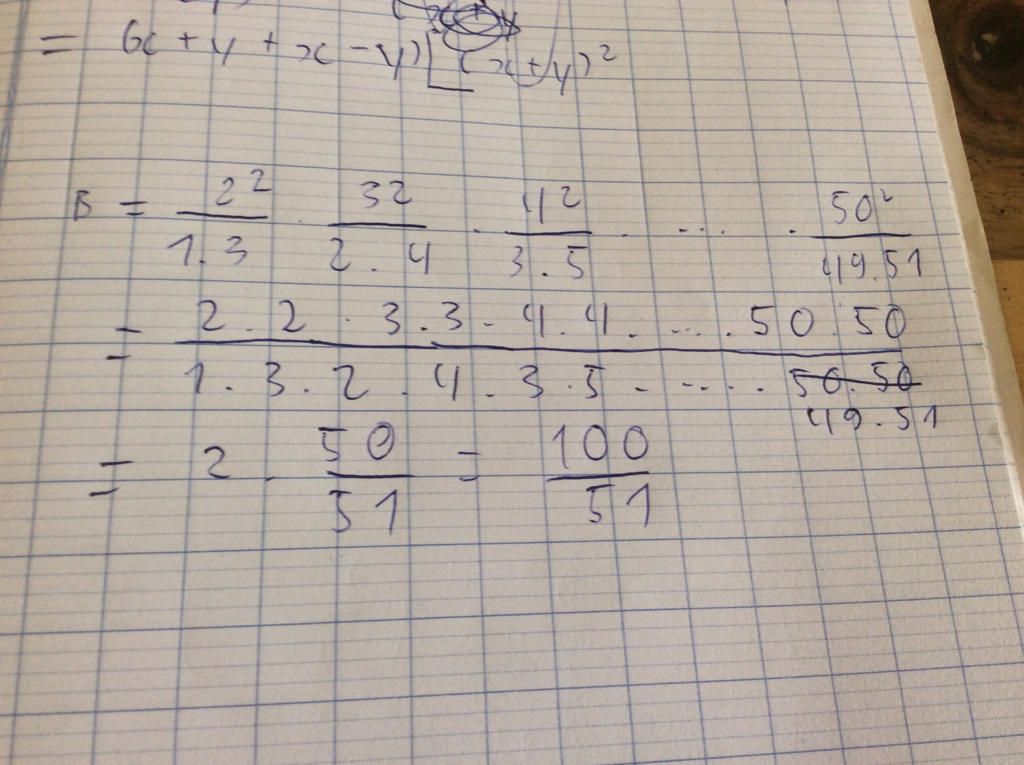 = (x + y + x - y) [(x + y)²
B = 2²/1.3 . 32/2.4 . 4²/3.5 . .... . 50²/49.51
= 2.2.3.3.4.4. .... .50.50/1.3.2.4.3.5. .... .50.50 49.51
= 2 . 50/51 = 100/51